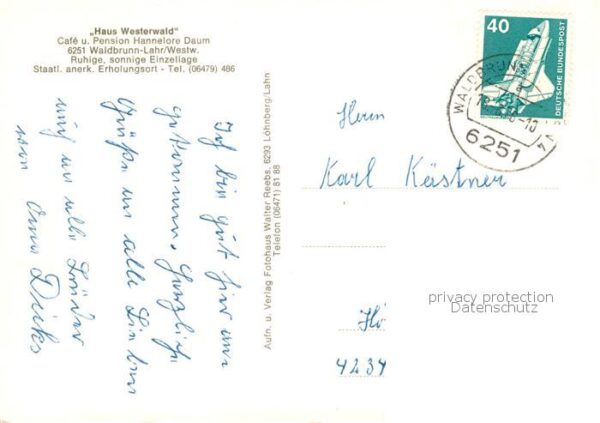 „Haus Westerwald"
Café u. Pension Hannelore Daum
6251 Waldbrunn-Lahr/Westw.
Ruhige, sonnige Einzellage
Staatl. anerk. Erholungsort - Tel. (06479) 486
Ich bin gut hier an
gekommen, herzliche
Grüße an alle Lieben
und an alle
von Oma Dicks
Aufn. u. Verlag Fotohaus Walter Reebs, 6293 Löhnberg/Lahn
Telefon (06471) 81 88
40
DEUTSCHE BUNDESPOST
WALDBRUNN
6251
Herrn
Karl Kästner
privacy protection
Datenschutz
4234